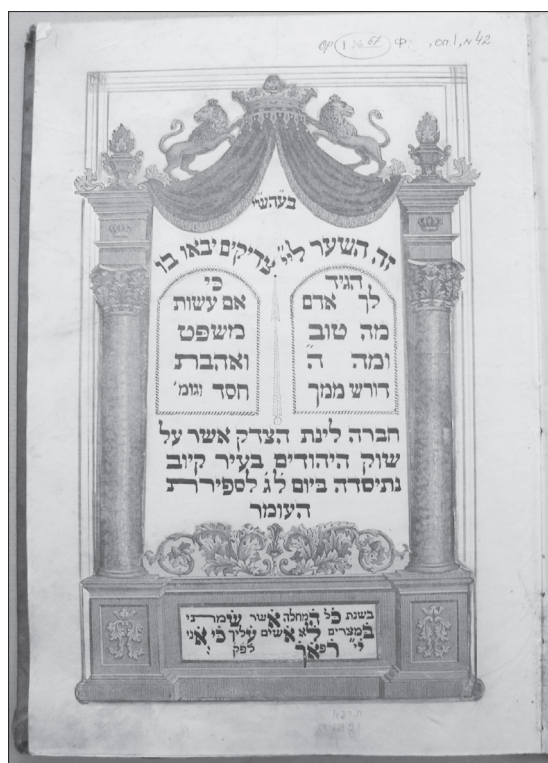 I № 67
מ 42
בעהש״י
זה השער לי״י צדיקים יבאו בו
הגיד
לך אדם
מה טוב
ומה ה״
דורש ממך
כי
אם עשות
משפט
ואהבת
חסד וגומ׳
חברה לינת הצדק אשר על
שוק היהודים בעיר קיוב
נתיסדה ביום לג לספירת
העומר
בשנת כל המחלה אשר שמתי
במצרים לא אשים עליך כי אני
י״י רפאך לפק